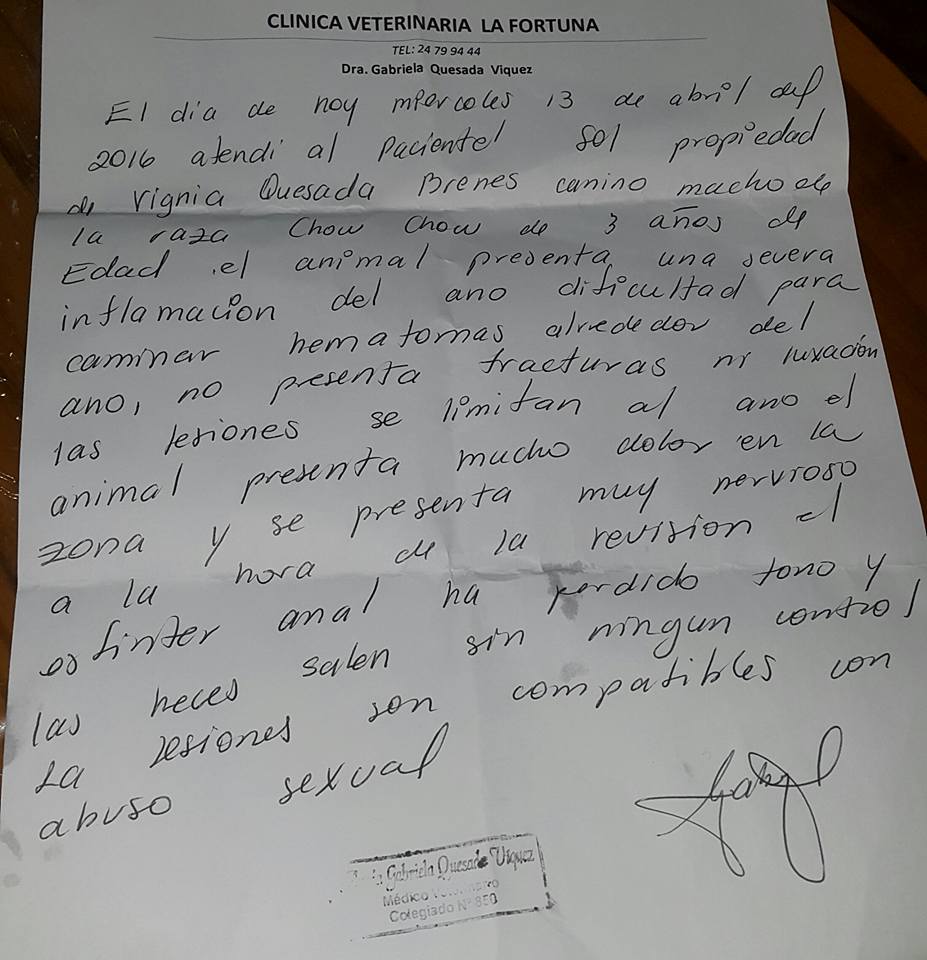 CLINICA VETERINARIA LA FORTUNA
TEL: 24 79 94 44
Dra. Gabriela Quesada Viquez
El dia de hoy miercoles 13 de abril del
2016 atendi al paciente sol propiedad
de Vignia Quesada Brenes canino macho de
la raza Chow Chow de 3 años de
Edad .el animal presenta una severa
inflamacion del ano dificultad para
caminar hematomas alrededor del
ano, no presenta fracturas ni luxación
las lesiones se limitan al ano el
animal presenta mucho dolor en la
zona y se presenta muy nervioso
a la hora de la revision el
esfinter anal ha perdido tono y
las heces salen sin ningun control
La lesiones son compatibles con
abuso sexual
Gabriela Quesada Viquez
Médico
Colegiado Nº 850